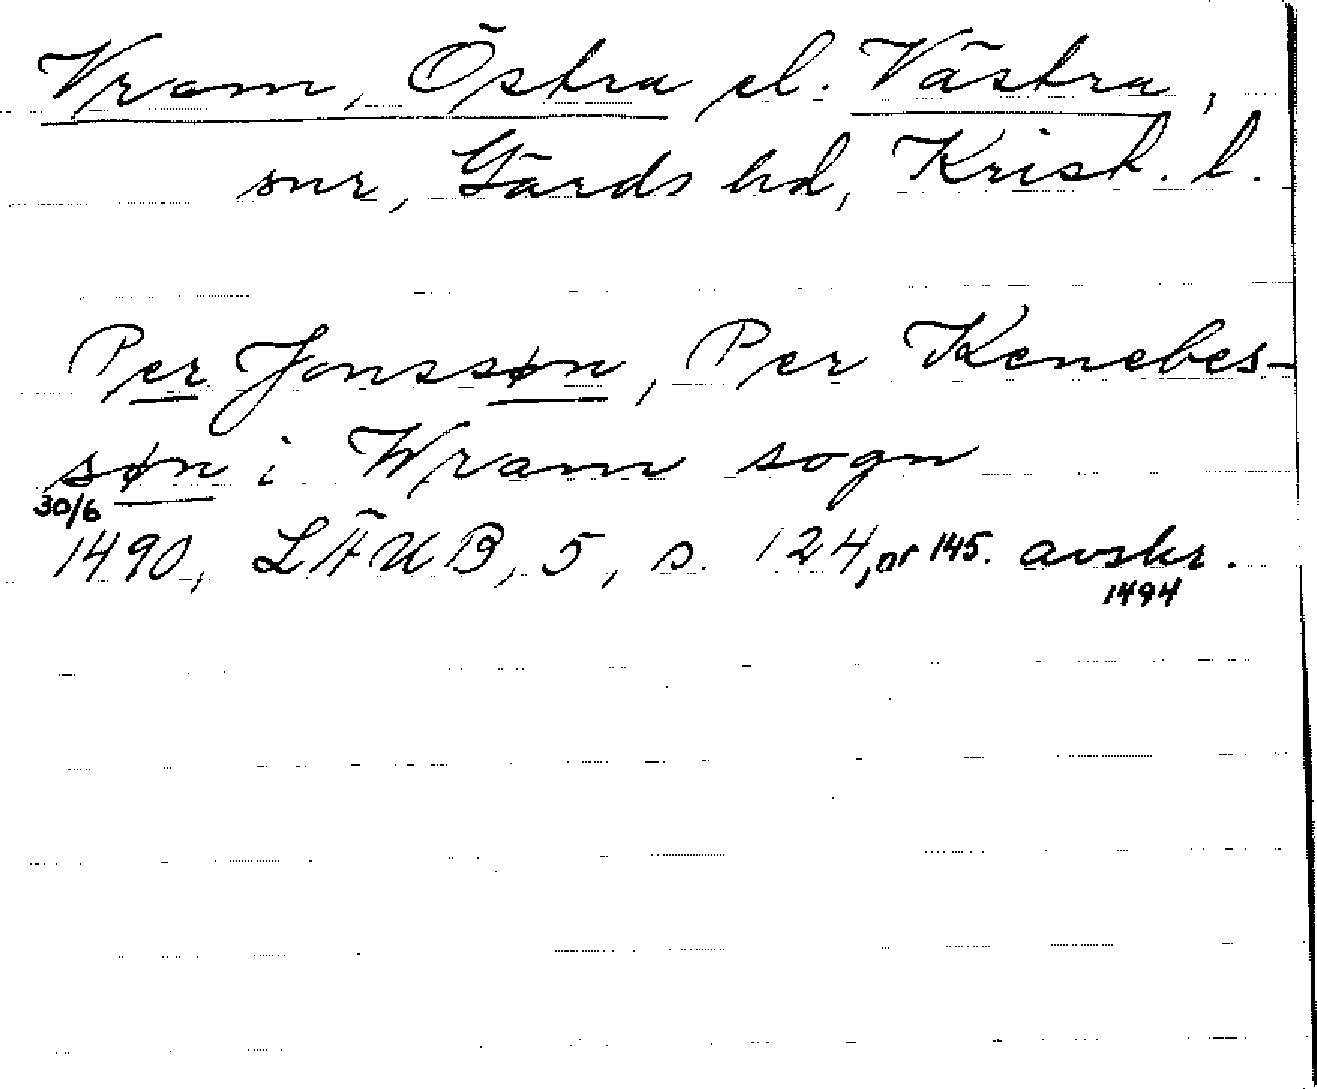 Vram, Östra el. Västra,
snr, Gärds hd, Krist. l.
Per Jonssøn, Per Kenebes-
søn i Wram sogn
30/6
1490, LÄUB, 5, s. 124, nr 145. avskr.
1494